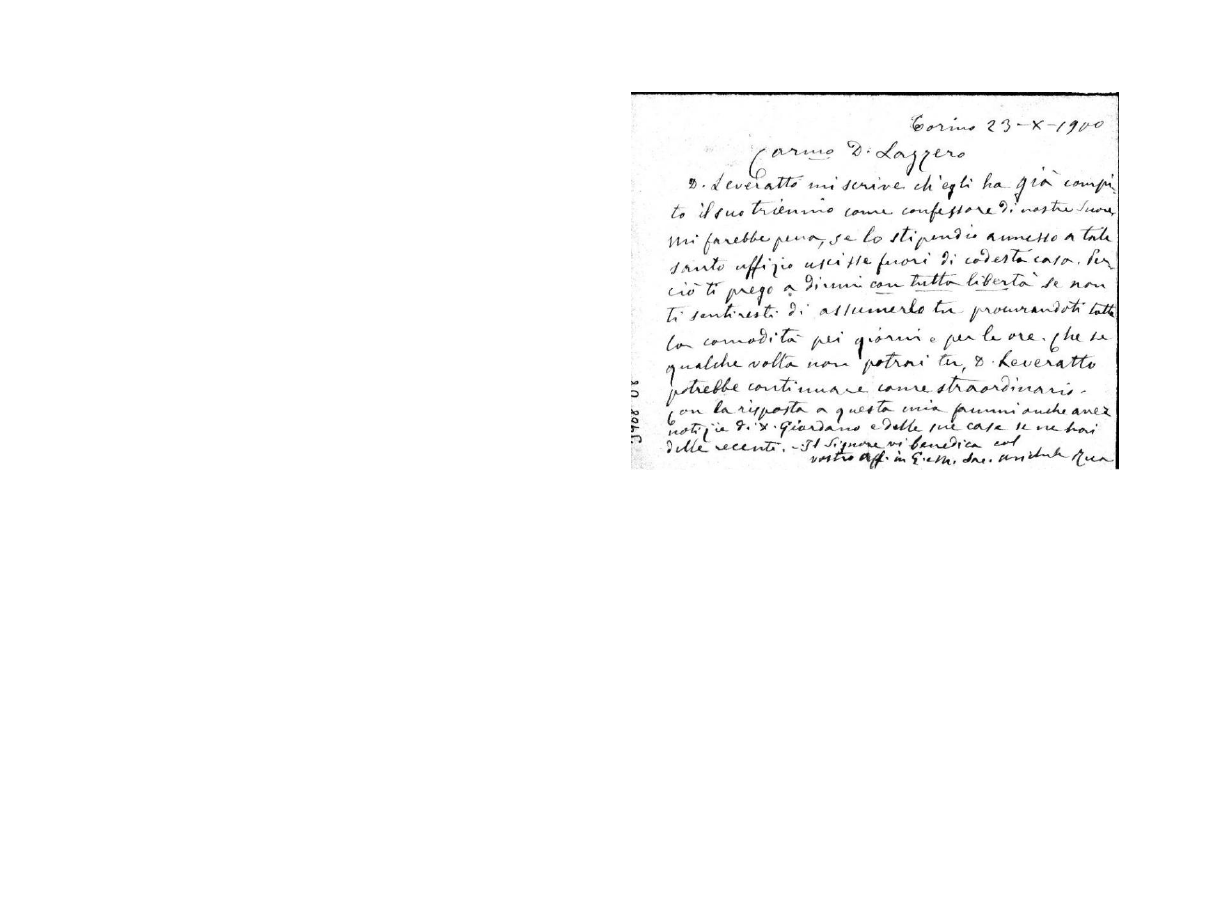 Torino 23-X-1900
Car.mo D. Lazzero
D. Leveratto mi scrive ch'egli ha già compi-
to il suo triennio come confessore di nostre Suore,
Mi farebbe pena, se lo stipendio annesso a tale
santo uffizio uscisse fuori di codesta casa. Per
ciò ti prego a dirmi con tutta libertà se non
ti sentiresti di assumerlo tu procurandoti tutta
la comodità pei giorni e per le ore. Che se
qualche volta non potrai tu, D. Leveratto
potrebbe continuare come straordinario.
Con la risposta a questa mia fammi anche aver
notizie di D. Giordano e delle sue case se ne hai
delle recenti. - Il Signore vi benedica col
vostro aff. in G. e M. Sac. Michele Rua